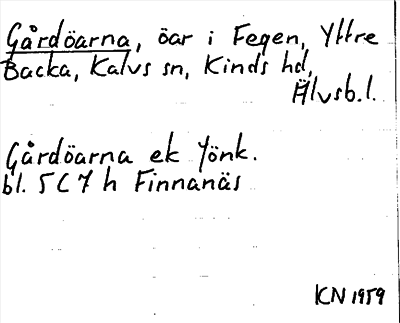 Gårdöarna, öar i Fegen, Yttre
Backa, Kalvs sn, Kinds hd,
Älvsb.l.
Gårdöarna ek Jönk.
bl. 5C7h Finnanäs
KN 1959